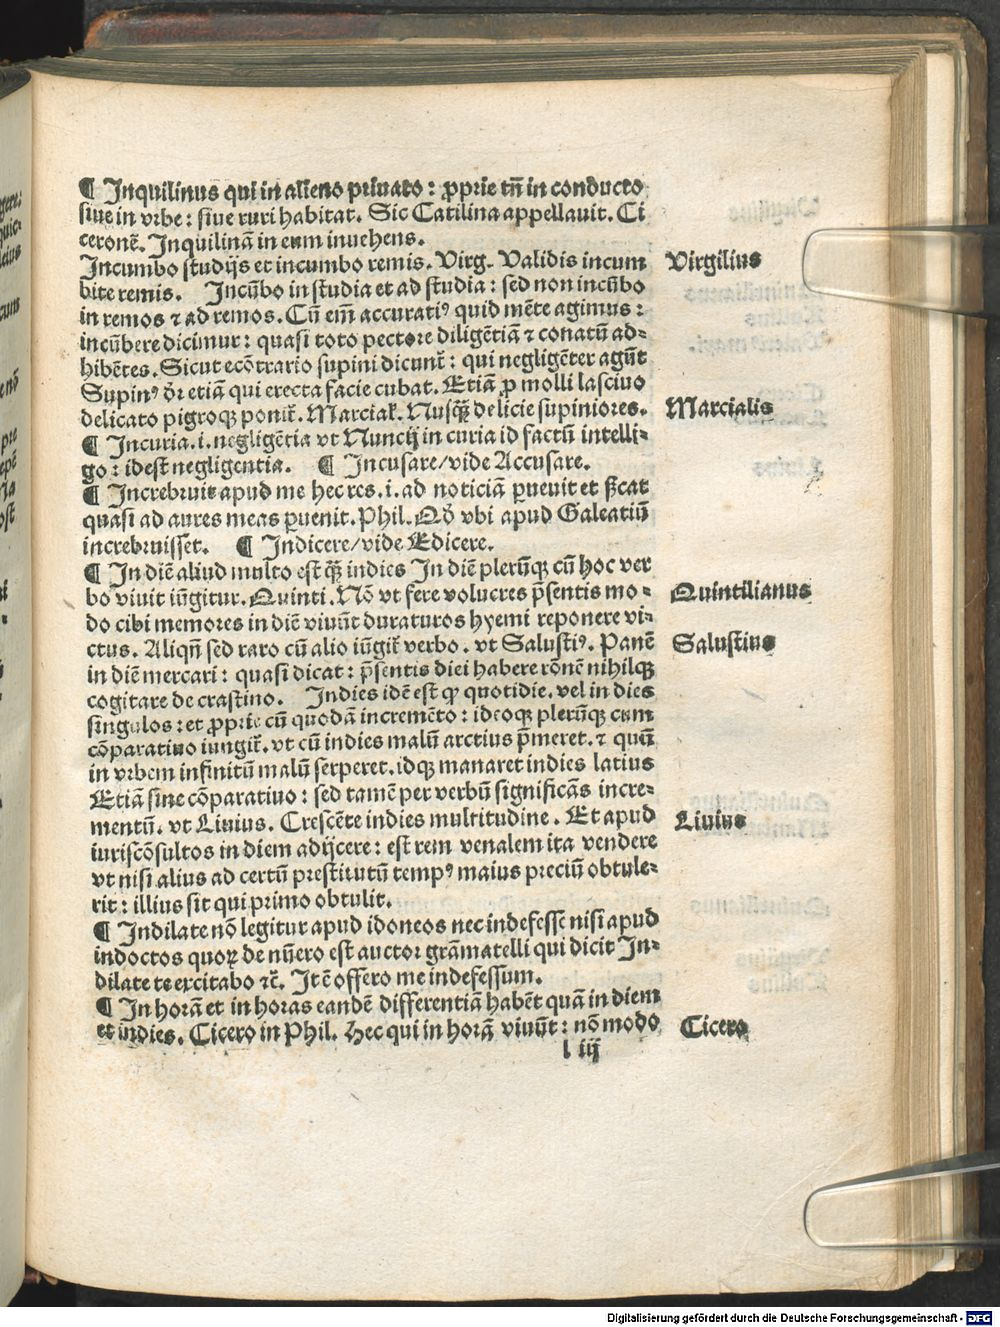 ¶ Inquilinus qui in alieno priuato : ꝓprie tn̄ in conducto
siue in vrbe : siue ruri habitat. Sic Catilina appellauit. Ci
ceronē. Inquilinā in eum inuehens.
Incumbo studijs et incumbo remis. Virg. Validis incum
bite remis. Incūbo in studia et ad studia : sed non incūbo
in remos ⁊ ad remos. Cū em̄ accuratiꝰ quid mēte agimus :
incūbere dicimur : quasi toto pectore diligētiā ⁊ conatū ad-
hibētes. Sicut ecōtrario supini dicunt̄ : qui negligēter agūt
Supinꝰ dr̄ etiā qui erecta facie cubat. Etiā ꝓ molli lasciuo
delicato pigroqꝫ ponit̄. Marcial. Nusqꝫ̄ delicie supiniores.
¶ Incuria .i. negligētia vt Nuncij in curia id factū intelli-
go : idest negligentia. ¶ Incusare/vide Accusare.
¶ Increbruit apud me hec res .i. ad noticiā ꝑuenit et
quasi ad aures meas ꝑuenit. Phil. Qđ vbi apud Galeatiū
increbruisset. ¶ Indicere/vide Edicere.
¶ In diē aliud multo est qꝫ̄ indies In diē plerūqꝫ cū hoc ver
bo viuit iūgitur. Quinti. Nō vt fere volucres p̄sentis mo-
do cibi memores in diē viuūt duraturos hyemi reponere vi-
ctus. Aliqn̄ sed raro cū alio iūgit̄ verbo. vt Salustiꝰ. Panē
in diē mercari : quasi dicat : p̄sentis diei habere rōnē nihilqꝫ
cogitare de crastino. Indies idē est qꝙ quotidie. vel in dies
singulos : et ꝓprie cū quodā incremēto : ideoqꝫ plerūqꝫ cum
cōparatiuo iungit̄. vt cū indies malū arctius p̄meret. ⁊ quū
in vrbem infinitū malū serperet. idqꝫ manaret indies latius
Etiā sine cōparatiuo : sed tamē per verbū significās incre-
mentū. vt Liuius. Crescēte indies multitudine. Et apud
iuriscōsultos in diem adijcere : est rem venalem ita vendere
vt nisi alius ad certū prestitutū tempꝰ maius preciū obtule-
rit : illius sit qui primo obtulit.
¶ Indilate nō legitur apud idoneos nec indefesse nisi apud
indoctos quoꝝ de nūero est auctor grāmatelli qui dicit In-
dilate te excitabo ⁊c̄. Itē offero me indefessum.
¶ In horā et in horas eandē differentiā habēt quā in diem
et indies. Cicero in Phil. Hec qui in horā viuūt : nō modo
l iij
Virgilius
Marcialis
Quintilianus
Salustius
Liuius
Cicero
Digitalisierung gefördert durch die Deutsche Forschungsgemeinschaft - DFG